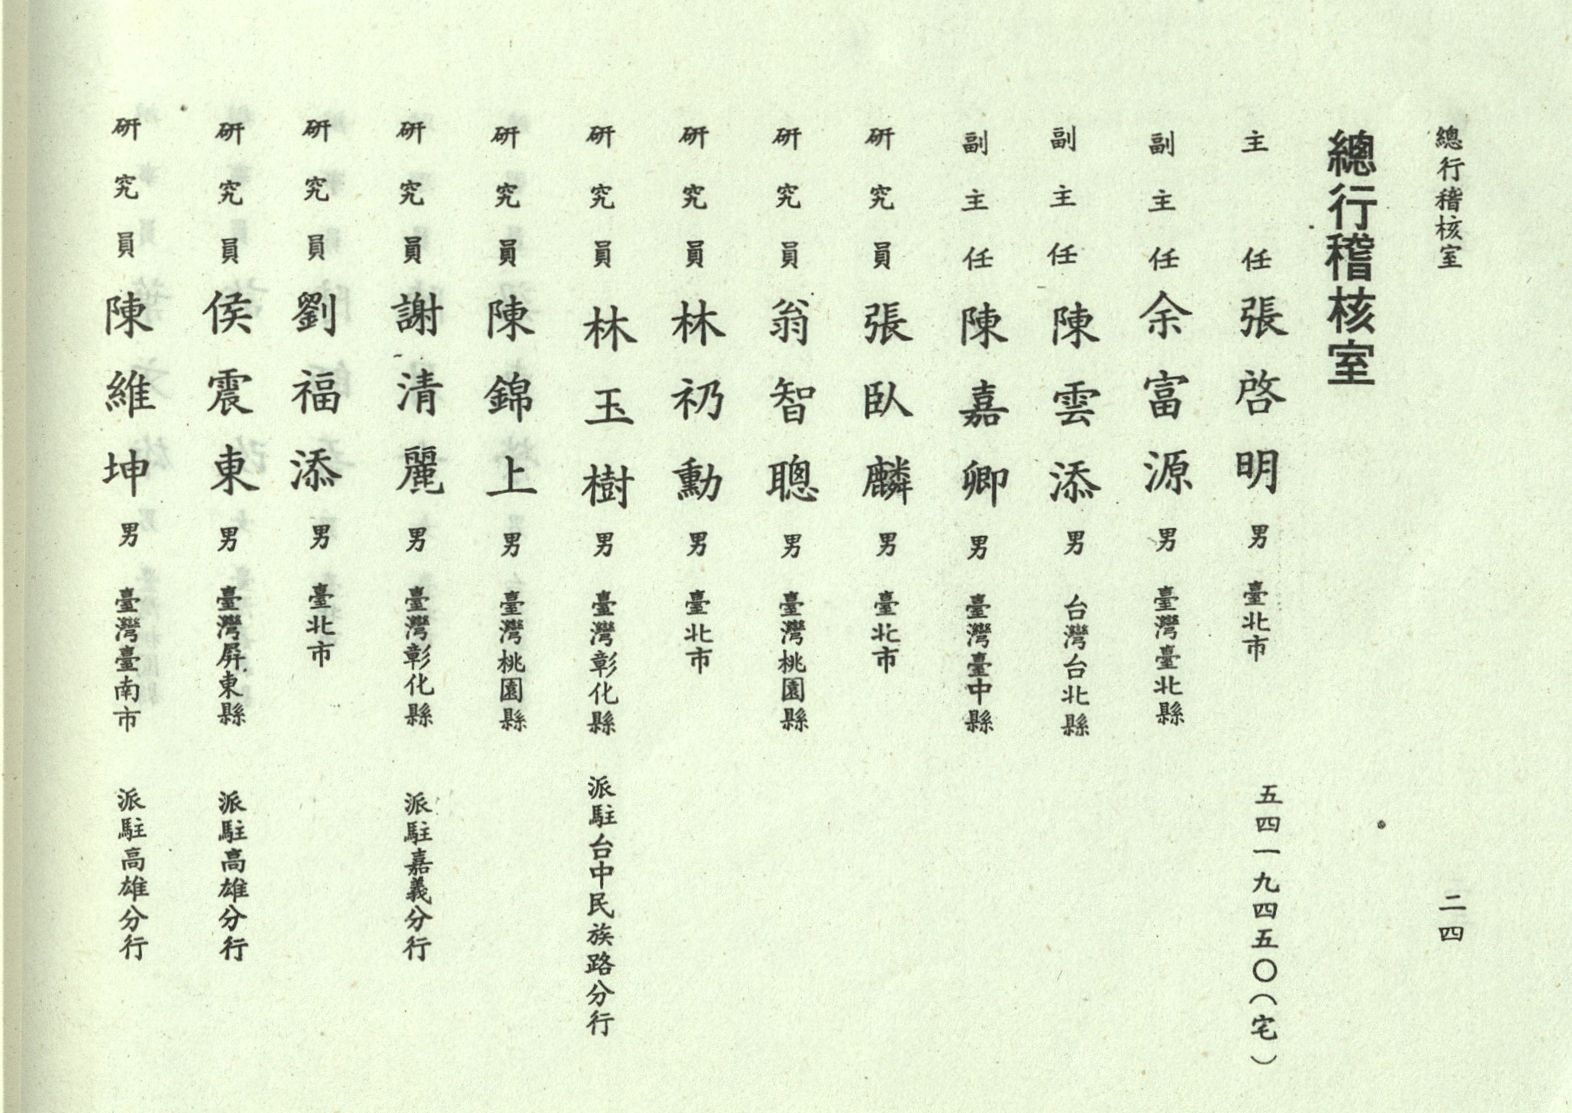 總行稽核室 二四
總行稽核室
主任 張啓明 男 臺北市 五四一九四五〇（宅）
副主任 余富源 男 臺灣臺北縣
副主任 陳雲添 男 台灣台北縣
副主任 陳嘉卿 男 臺灣臺中縣
研究員 張臥麟 男 臺北市
研究員 翁智聰 男 臺灣桃園縣
研究員 林礽勳 男 臺北市
研究員 林玉樹 男 臺灣彰化縣 派駐台中民族路分行
研究員 陳錦上 男 臺灣桃園縣
研究員 謝清麗 男 臺灣彰化縣 派駐嘉義分行
研究員 劉福添 男 臺北市
研究員 侯震東 男 臺灣屏東縣 派駐高雄分行
研究員 陳維坤 男 臺灣臺南市 派駐高雄分行